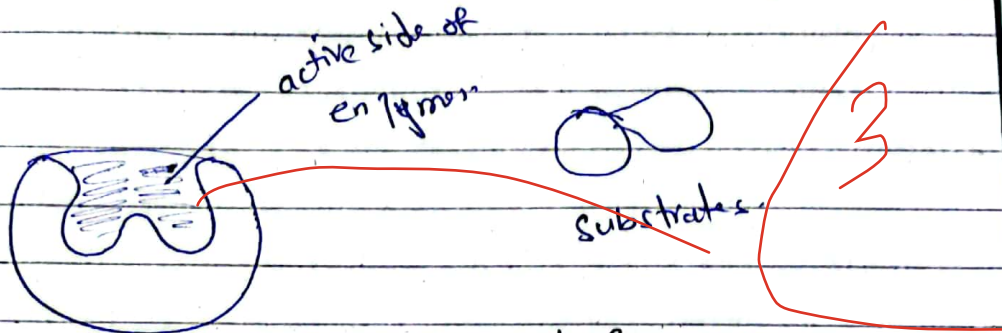 active side of
enzymes
substrates.
3